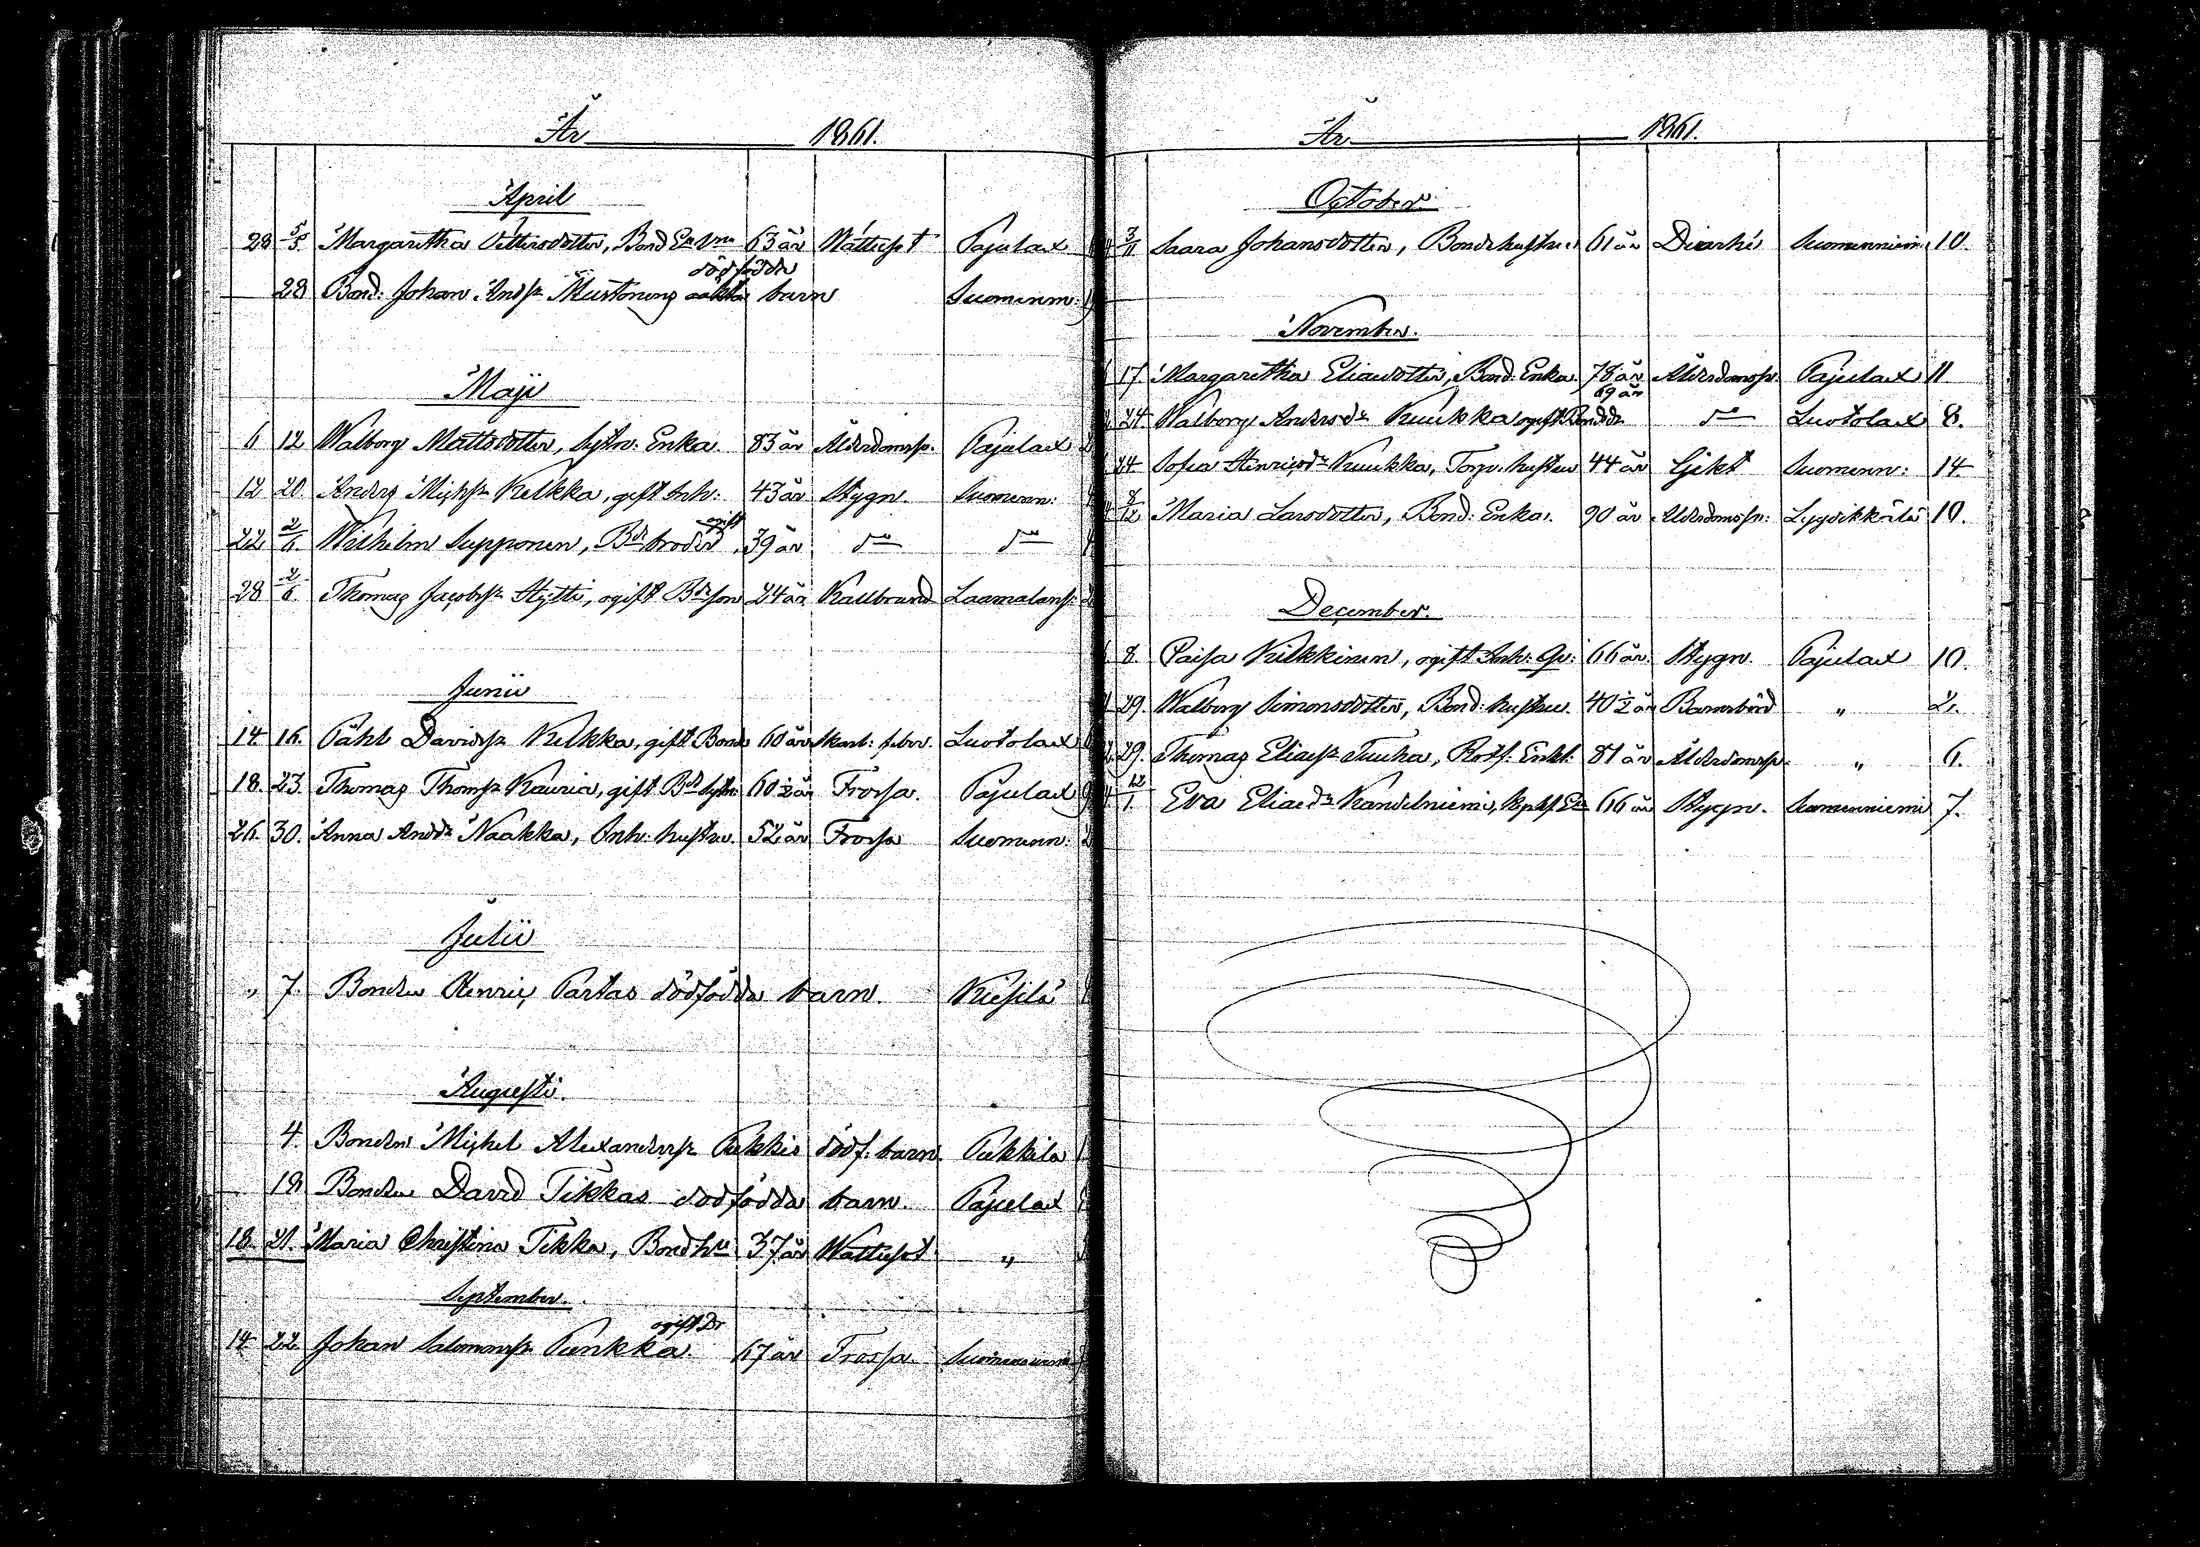 År 1861.
April
28 5/5 Margaretha Pettersdotter, Bond Enka 63 år Wattusot Pajulax
28 Bond: Johan Andsr Mustonens dödfödda äkta barn Suominm:
Maji
6 12 Walborg Mattsdotter, Sytn: Enka 83 år Ålderdomssv. Pajulax
12 20. Anders Michsr Kelkka, gift Inh: 43 år Stygn. Suomenn:
22 2/6. Wilhelm Supponen, Bds broder ogift 39 år do do
28 2/6 Thomas Jacobsr Hytti, ogift Bdeson 24 år Kallbrand Laamalans:
Junii
14 16. Påhl Davidsr Kelkka, gift Bonde 60 år Skarl: febr. Luotolax
18. 23. Thomas Thomsr Kauria, gift Bds Sytn 60 ½ år Frossa. Pajulax
26. 30. Anna Andsdr Naakka, Inh: hustru. 52 år Frossa Suomenn:
Julii
„ 7. Bonden Henric Partas dödfödda barn. Kiesilä
Augusti.
4. Bonden Michel Alexandersr Pukkis dödf. barn Pukkila
18 Bonden David Tikkas dödfödda barn. Pajulax
18. 21. Maria Christina Tikka, Bond hu 37 år Wattusot „
September.
14 22. Johan Salomonsr Punkka. ogift Dr 67 år Frossa. Suomenniemi
År 1861.
October
3/11 Saara Johansdotter, Bondehustru 61 år Diarhé Suomenniemi 10.
November.
17. Margaretha Eliaedotter, Bond: Enka. 78 år Ålderdomssv. Pajulax 11
24 Walborg Andersdr Kuukka ogift Bondedr 69 år do Luotolax 8.
24 Sofia Henricsdr Kuukka, Torp: hustru 44 år Gikt Suomenn: 14
8/12 Maria Larsdotter, Bond: Enka. 90 år Ålderdomssv: Lyydikkälä 10.
December.
8. Caisa Kilkkinen, ogift Inh: Qv: 66 år. Stygn. Pajulax 10.
29. Walborg Simonsdotter, Bond: hustru. 40 ½ år Barnsbörd „ 2.
29. Thomas Eliaesr Tuuha, Rotf. Enkl. 81 år Ålderdomssv. „ 6.
12/1. Eva Eliaedr Kandelniemi, 66 år Stygn. Suomenniemi 7.